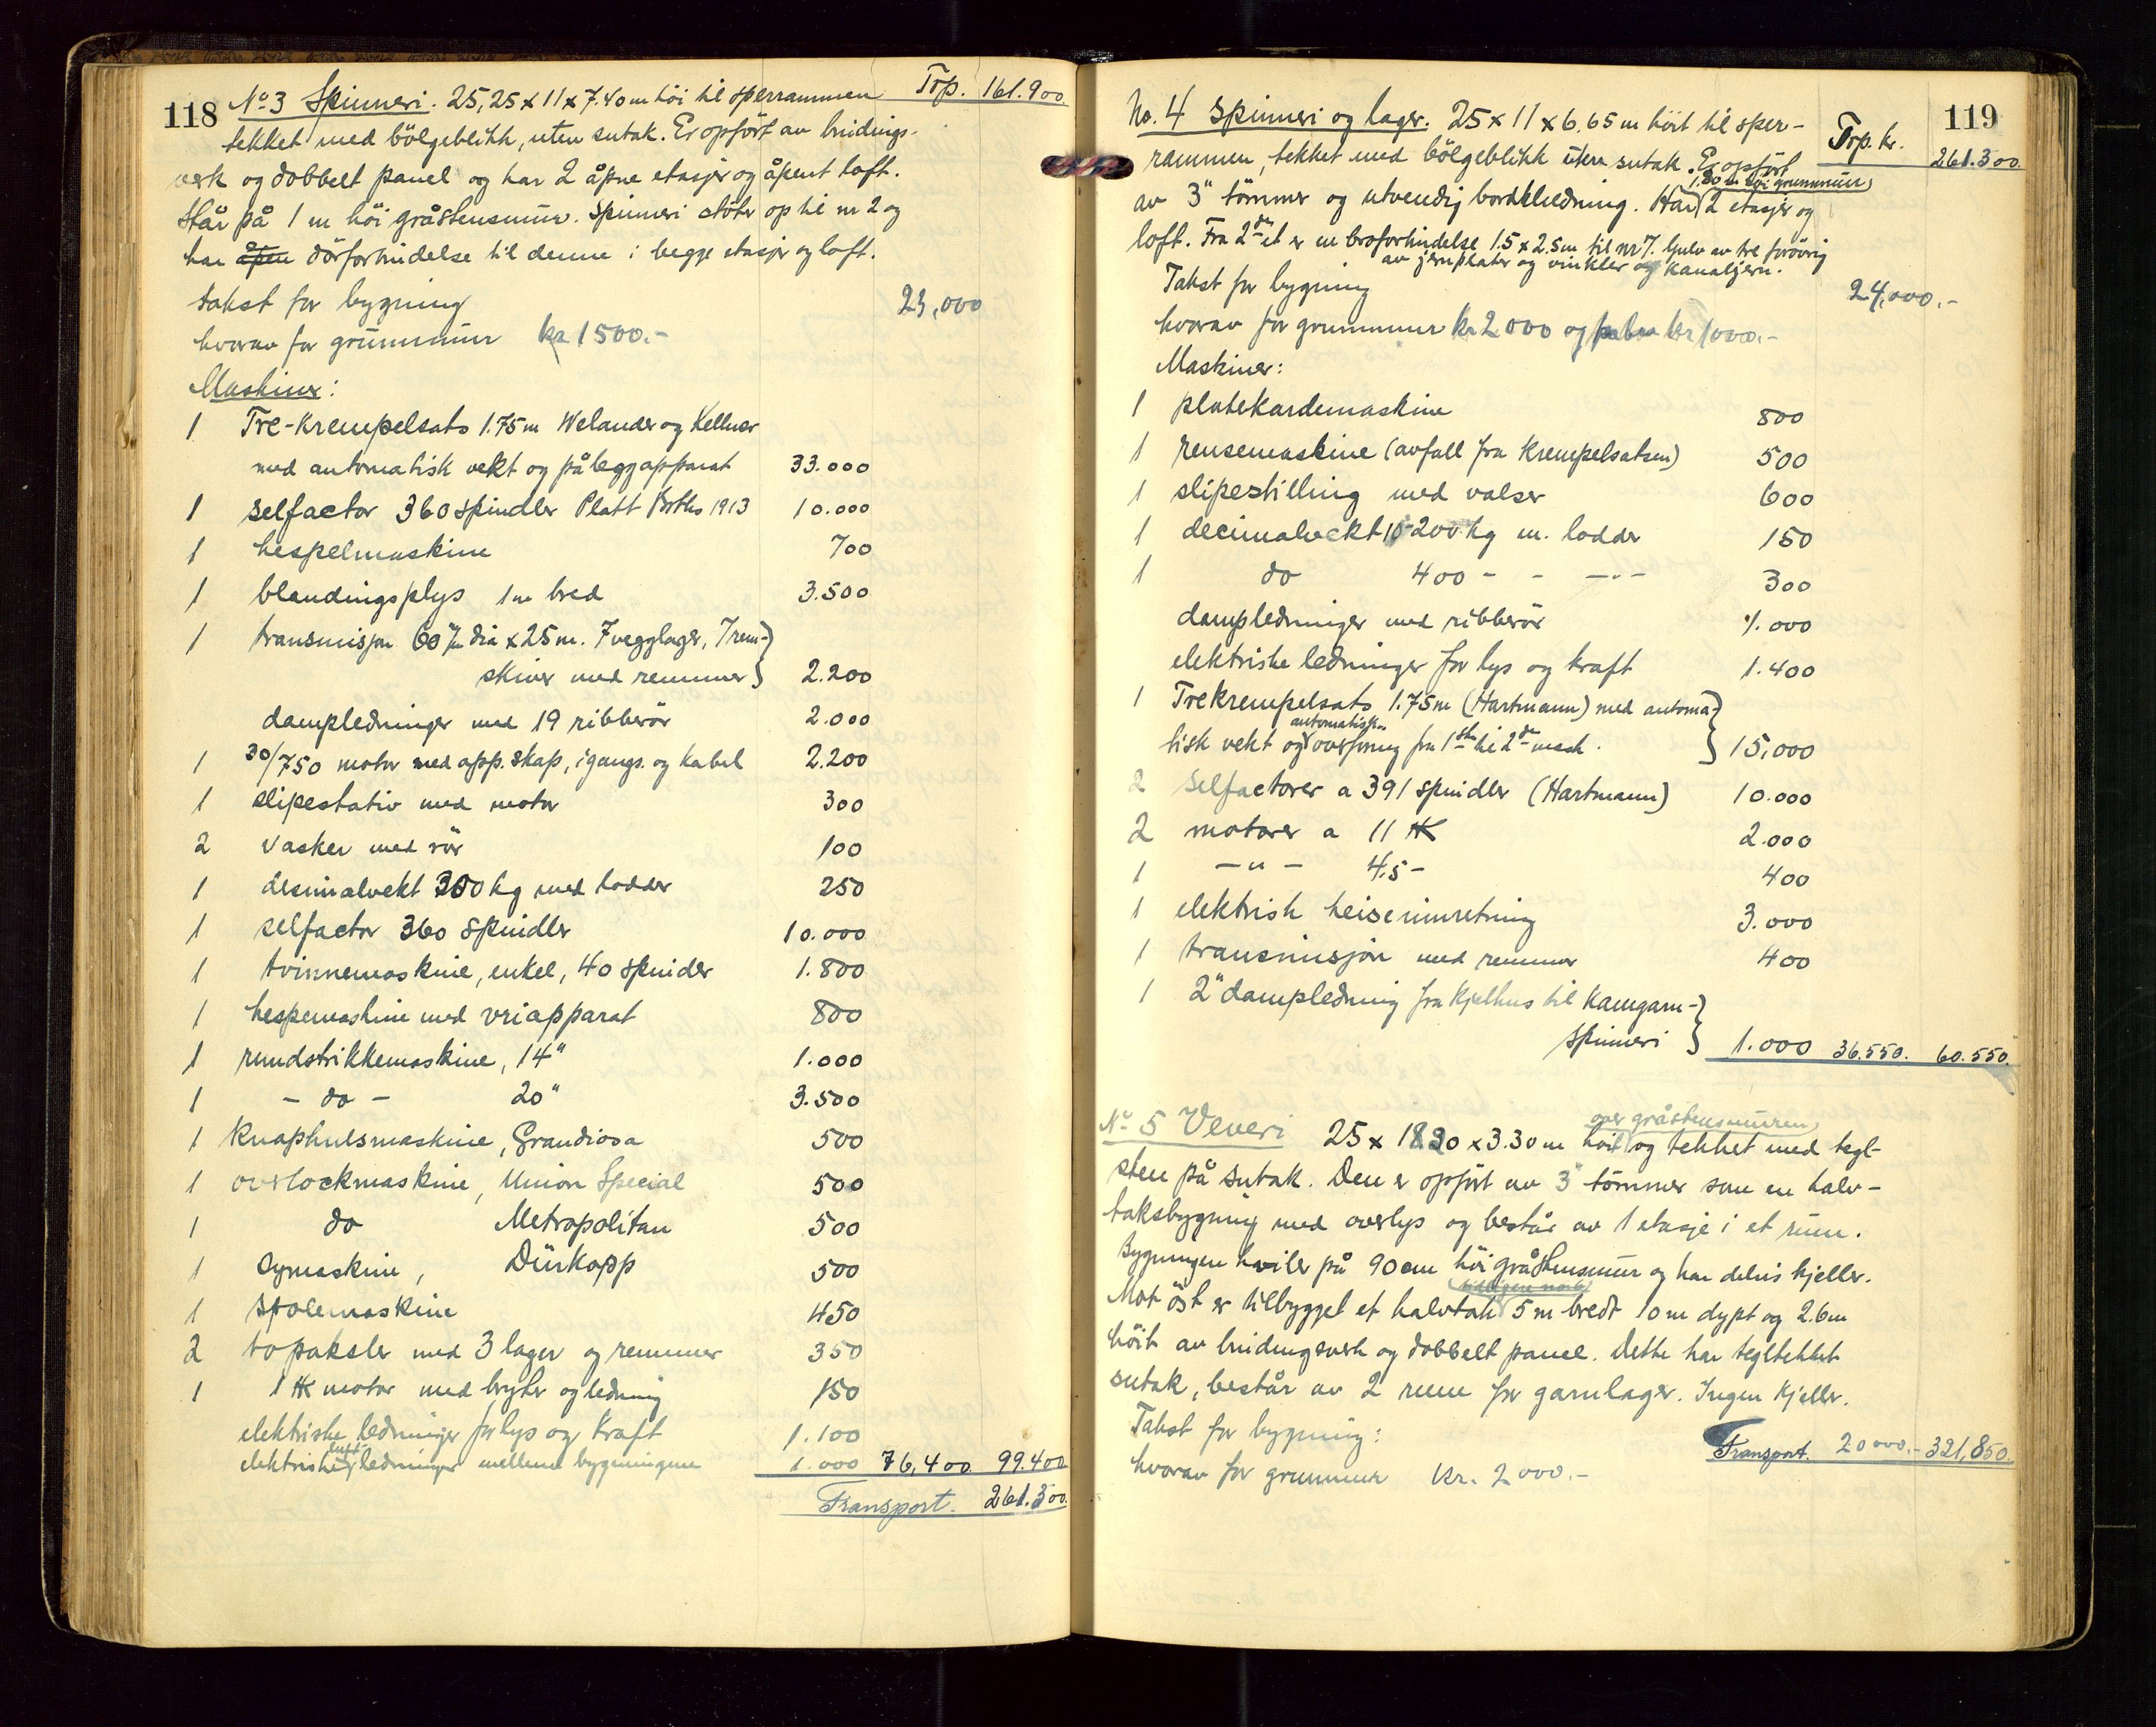 118 No 3 Spinneri. 25,25 x 11 x 7.40 m höi til sperrammen Trp. 161.900
tekket med bölgeblikk, uten sutak. Er opfört av bindings-
verk og dobbelt panel og har 2 åpne etasjer og åpent loft.
Står på 1 m höi gråstensmur. Spinneri stöter op til nr 2 og
har åpen dörforbindelse til denne i begge etasjer og loft.
Takst for bygning 23,000
hvorav for grunnmur kr 1500.-
Maskiner:
1 Tre-krempelsats 1.75 m Welander og Kellner
med automatisk vekt og påleggapparat 33.000
1 selfactor 360 spindler Platt Broths 1913 10.000
1 hespelmaskine 700
1 blandingsplys 1 m bred 3.500
1 transmisjon 60 m/m dia x 25 m. 7 vegglager, 7 rem-
skiver med remmer 2.200
dampledninger med 19 ribberör 2.000
1 30/750 motor med app. skap, igangs. og kabel 2.200
1 slipestativ med motor 300
2 vasker med rör 100
1 desimalvekt 300 kg med lodder 250
1 selfactor 360 spindler 10.000
1 tvinnemaskine, enkel, 40 spinder 1.800
1 hespemaskine med vriapparat 800
1 rundstrikkemaskine, 14" 1.000
1 - do - 20" 3.500
1 knaphulsmaskine, Grandiosa 500
1 overlockmaskine, Union Special 500
1 do Metropolitan 500
1 symaskine, Dürkopp 500
1 spolemaskine 450
2 topaksler med 3 lager og remmer 350
1 1 HK motor med bryter og ledning 150
elektriske ledninger for lys og kraft 1.100
elektriske luftledninger mellem bygningene 1.000 76,400 99.400
Transport. 261.300.
119
No. 4 Spinneri og lager. 25 x 11 x 6.65 m höit til sper- Trp. kr. 261.300
rammen, tekket med bölgeblikk uten sutak. Er opfört
1.80 m höi grunnmur,
av 3" tömmer og utvendig bordkledning. Har 2 etasjer og
loft. Fra 2den et er en broforbindelse 1.5 x 2.5 m til nr 7. Gulv av tre forövrig
av jernplater og vinkler og kanaljern.
Takst for bygning 24,000.-
hvorav for grunnmur kr 2000 og kr 1000.-
Maskiner:
1 platekardemaskine 800
1 rensemaskine (avfall fra krempelsatsen) 500
1 slipestilling med valser 600
1 decimalvekt 10-200 kg m. lodder 150
1 do 400 - - -"- 300
dampledninger med ribberör 1.000
elektriske ledninger for lys og kraft 1.400
1 Trekrempelsats 1.75 m (Hartmann) med automa-
automatisk
tisk vekt og overföring fra 1ste til 2den mask. 15,000
2 selfactorer a 391 spindler (Hartmann) 10.000
2 motorer a 11 HK 2.000
1 -"- 4,5 - 400
1 elektrisk heiseinnretning 3.000
1 transmisjon med remmer 400
1 2" dampledning fra kjelhus til kamgarn-
spinneri 1.000 36.550. 60.550.
over gråstensmuren
No 5 Veveri 25 x 18.20 x 3.30 m höit og tekket med tegl-
sten på sutak. Den er opfört av 3" tömmer som en halv-
taksbygning med overlys og består av 1 etasje i et rum.
Bygningen hviler på 90 cm höi gråstensmur og har delvis kjeller.
Mot öst er tilbygget et halvtak 5 m bredt 10 m dypt og 2.6 m
höit av bindingsverk og dobbelt panel. Dette har tegltekket
sutak, består av 2 rum for garnlager. Ingen kjeller.
Takst for bygning: Transport. 20000.- 321,850.
hvorav for grunnmur kr. 2000.-